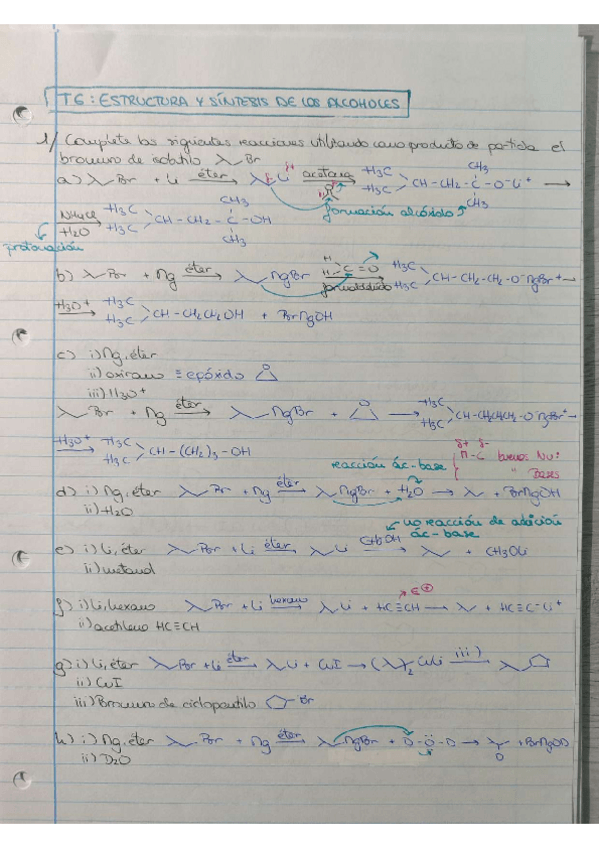 T6: ESTRUCTURA Y SÍNTESIS DE LOS ALCOHOLES
1/ Complete las siguientes reacciones utilizando como producto de partida el
bromuro de isobutilo Br
a) Br + Li éter Li acetona H3C H3C CH-CH2-C-O-Li+ CH3 CH3
formación alcóxido
NH4Cl H2O H3C H3C CH-CH2-C-OH CH3 CH3
protonación
b) Br + Mg éter MgBr H H C=O formaldehído H3C H3C CH-CH2-CH2-O-MgBr+
H3O+ H3C H3C CH-CH2CH2OH + BrMgOH
c) i) Mg, éter
ii) oxirano ≡ epóxido O
iii) H3O+
Br + Mg éter MgBr + O H3C H3C CH-CH2CH2CH2-O MgBr+
H3O+ H3C H3C CH-(CH2)3-OH
δ+ δ-
M-C buenos Nu:
" Bases
reacción ác-base
d) i) Mg, éter Br + Mg éter MgBr + H2O + BrMgOH
ii) H2O
no reacción de adición
ác-base
e) i) Li, éter Br + Li éter Li CH3OH + CH3OLi
ii) metanol
f) i) Li, hexano Br + Li hexano Li + HC≡CH + HC≡C-Li+
ii) acetileno HC≡CH
g) i) Li, éter Br + Li éter Li + CuI ( )2 CuLi iii)
ii) CuI
iii) Bromuro de ciclopentilo Br
h) i) Mg, éter Br + Mg éter MgBr + D-O-D D + BrMgOD
ii) D2O